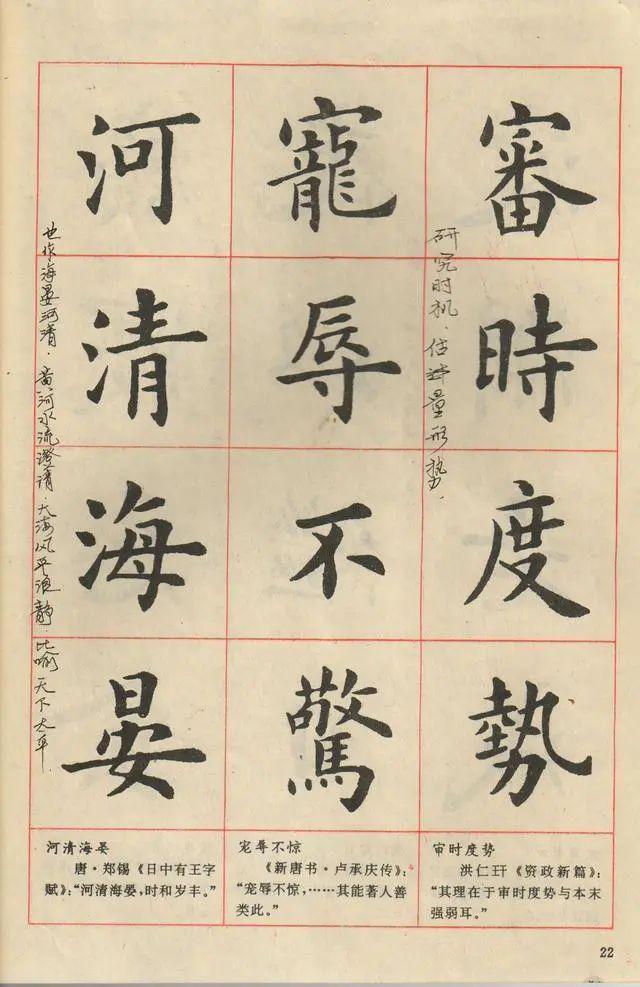 審時度勢
研究时机．估计量形势．
寵辱不驚
河清海晏
也作海晏河清．黄河水流澄清．大海风平浪静．比喻天下太平
审时度势
洪仁玕《资政新篇》：
“其理在于审时度势与本末
强弱耳。”
宠辱不惊
《新唐书·卢承庆传》：
“宠辱不惊，……其能著人善
类此。”
河清海晏
唐·郑锡《日中有王字
赋》：“河清海晏，时和岁丰。”
22